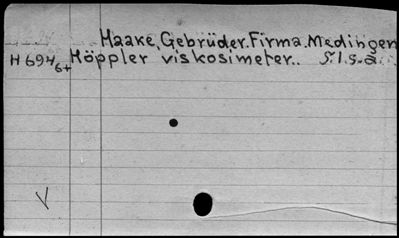 Haake, Gebrüder. Firma. Medingen
H694 Höppler viskosimeter.. s.l.s.a.
6+
V